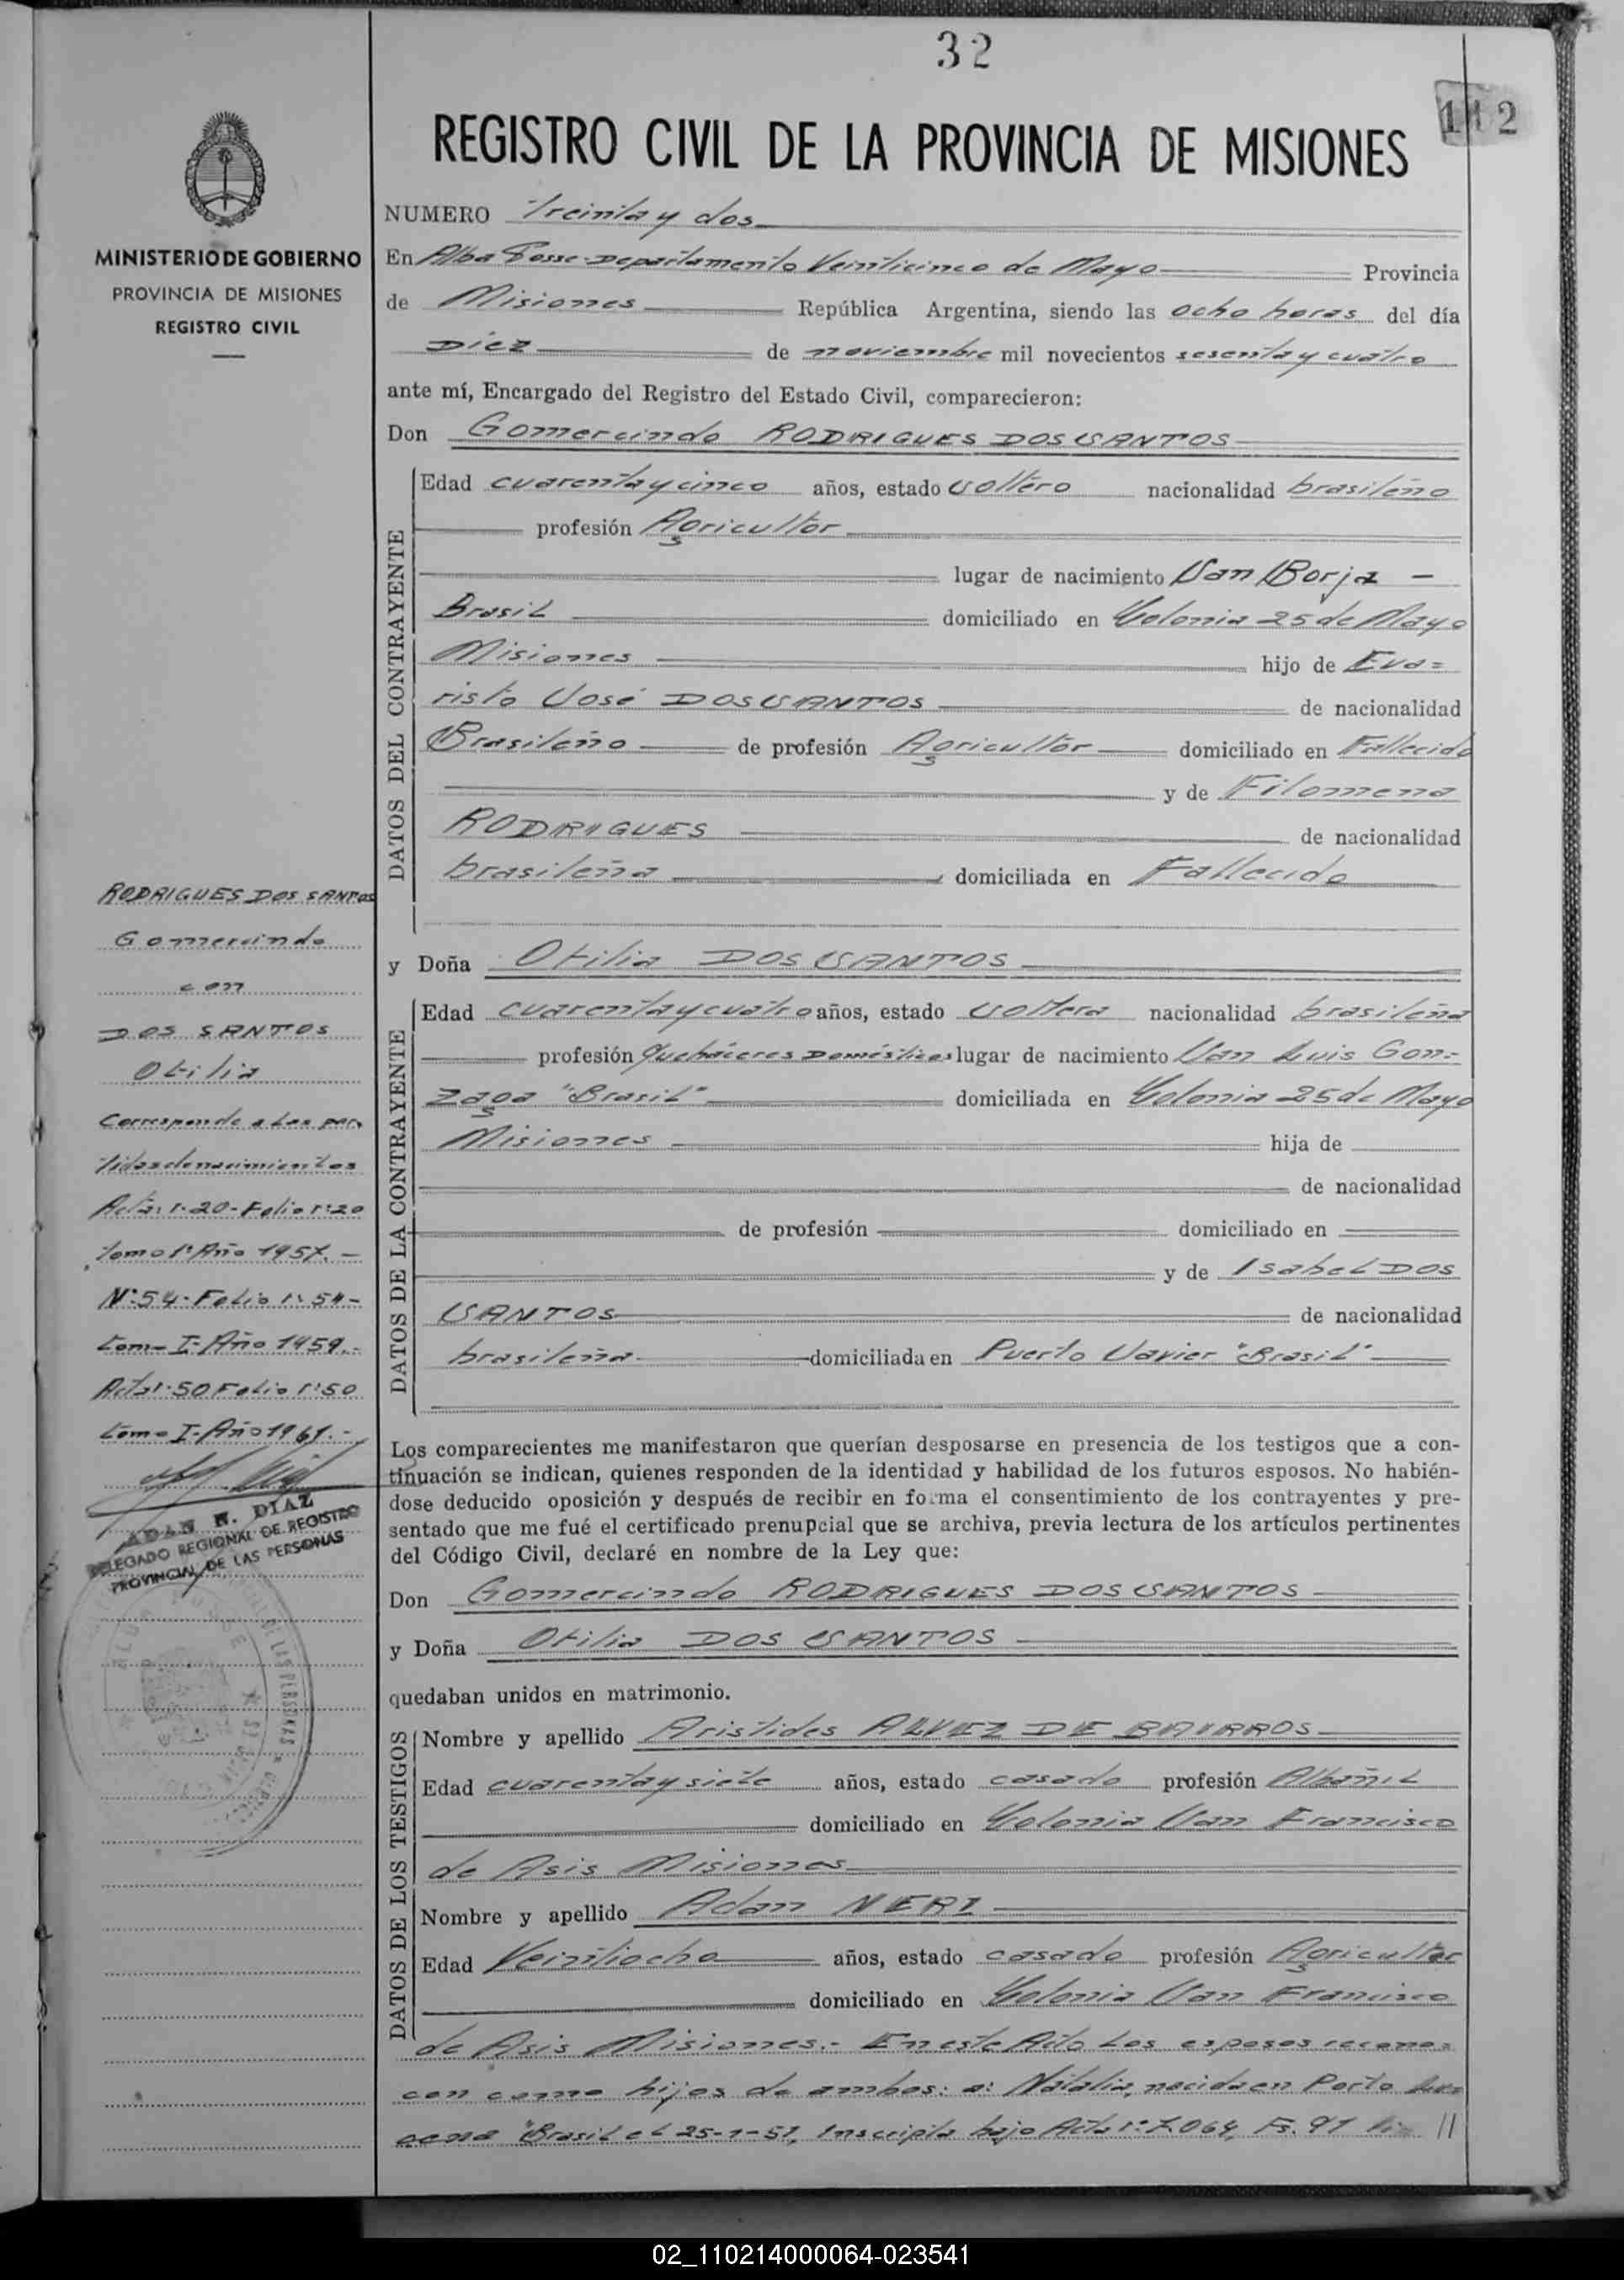 32
112
REGISTRO CIVIL DE LA PROVINCIA DE MISIONES
MINISTERIO DE GOBIERNO
PROVINCIA DE MISIONES
REGISTRO CIVIL
NUMERO Treinta y dos
En Alba Posse-Departamento Veinticinco de Mayo Provincia
de Misiones República Argentina, siendo las ocho horas del día
Diez de noviembre mil novecientos sesenta y cuatro
ante mí, Encargado del Registro del Estado Civil, comparecieron:
Don Gomercindo RODRIGUES DOS SANTOS
DATOS DEL CONTRAYENTE
Edad cuarenta y cinco años, estado Soltero nacionalidad brasileño
profesión Agricultor
lugar de nacimiento San Borja -
Brasil domiciliado en Colonia 25 de Mayo
Misiones hijo de Eva=
risto José DOS SANTOS de nacionalidad
Brasileño de profesión Agricultor domiciliado en Fallecido
y de Filomena
RODRIGUES de nacionalidad
brasileña domiciliada en Fallecida
y Doña Otilia DOS SANTOS
DATOS DE LA CONTRAYENTE
Edad cuarenta y cuatro años, estado Soltera nacionalidad brasileña
profesión Quehaceres Domésticos lugar de nacimiento San Luis Gon=
zaga "Brasil" domiciliada en Colonia 25 de Mayo
Misiones hija de
de nacionalidad
de profesión domiciliado en
y de Isabel DOS
SANTOS de nacionalidad
brasileña domiciliada en Puerto Javier "Brasil"
Los comparecientes me manifestaron que querían desposarse en presencia de los testigos que a con-
tinuación se indican, quienes responden de la identidad y habilidad de los futuros esposos. No habién-
dose deducido oposición y después de recibir en forma el consentimiento de los contrayentes y pre-
sentado que me fué el certificado prenupcial que se archiva, previa lectura de los artículos pertinentes
del Código Civil, declaré en nombre de la Ley que:
Don Gomercindo RODRIGUES DOS SANTOS
y Doña Otilia DOS SANTOS
quedaban unidos en matrimonio.
DATOS DE LOS TESTIGOS
Nombre y apellido Aristides ALVEZ DE BAIRROS
Edad cuarenta y siete años, estado casado profesión Albañil
domiciliado en Colonia San Francisco
de Asis Misiones
Nombre y apellido Adan NERI
Edad Veintiocho años, estado casado profesión Agricultor
domiciliado en Colonia San Francisco
de Asis Misiones.- En este Acto Los esposos recono=
cen como hijos de ambos: a: Natalia, nacida en Porto
"Brasil el 25-1-51, Inscripta bajo Acta nº 7.064, Fs. 91 //
RODRIGUES DOS SANTOS
Gomercindo
con
DOS SANTOS
Otilia
Corresponde a Las par=
tidas de nacimientos
Acta nº 20-Folio nº 20
tomo 1º Año 1957.-
Nº 54-Folio nº 54-
tomo I-Año 1959.-
Acta nº 50 Folio nº 50
tomo I-Año 1961.-
ADAN R. DIAZ
DELEGADO REGIONAL DE REGISTRO
PROVINCIAL DE LAS PERSONAS
02_110214000064-023541